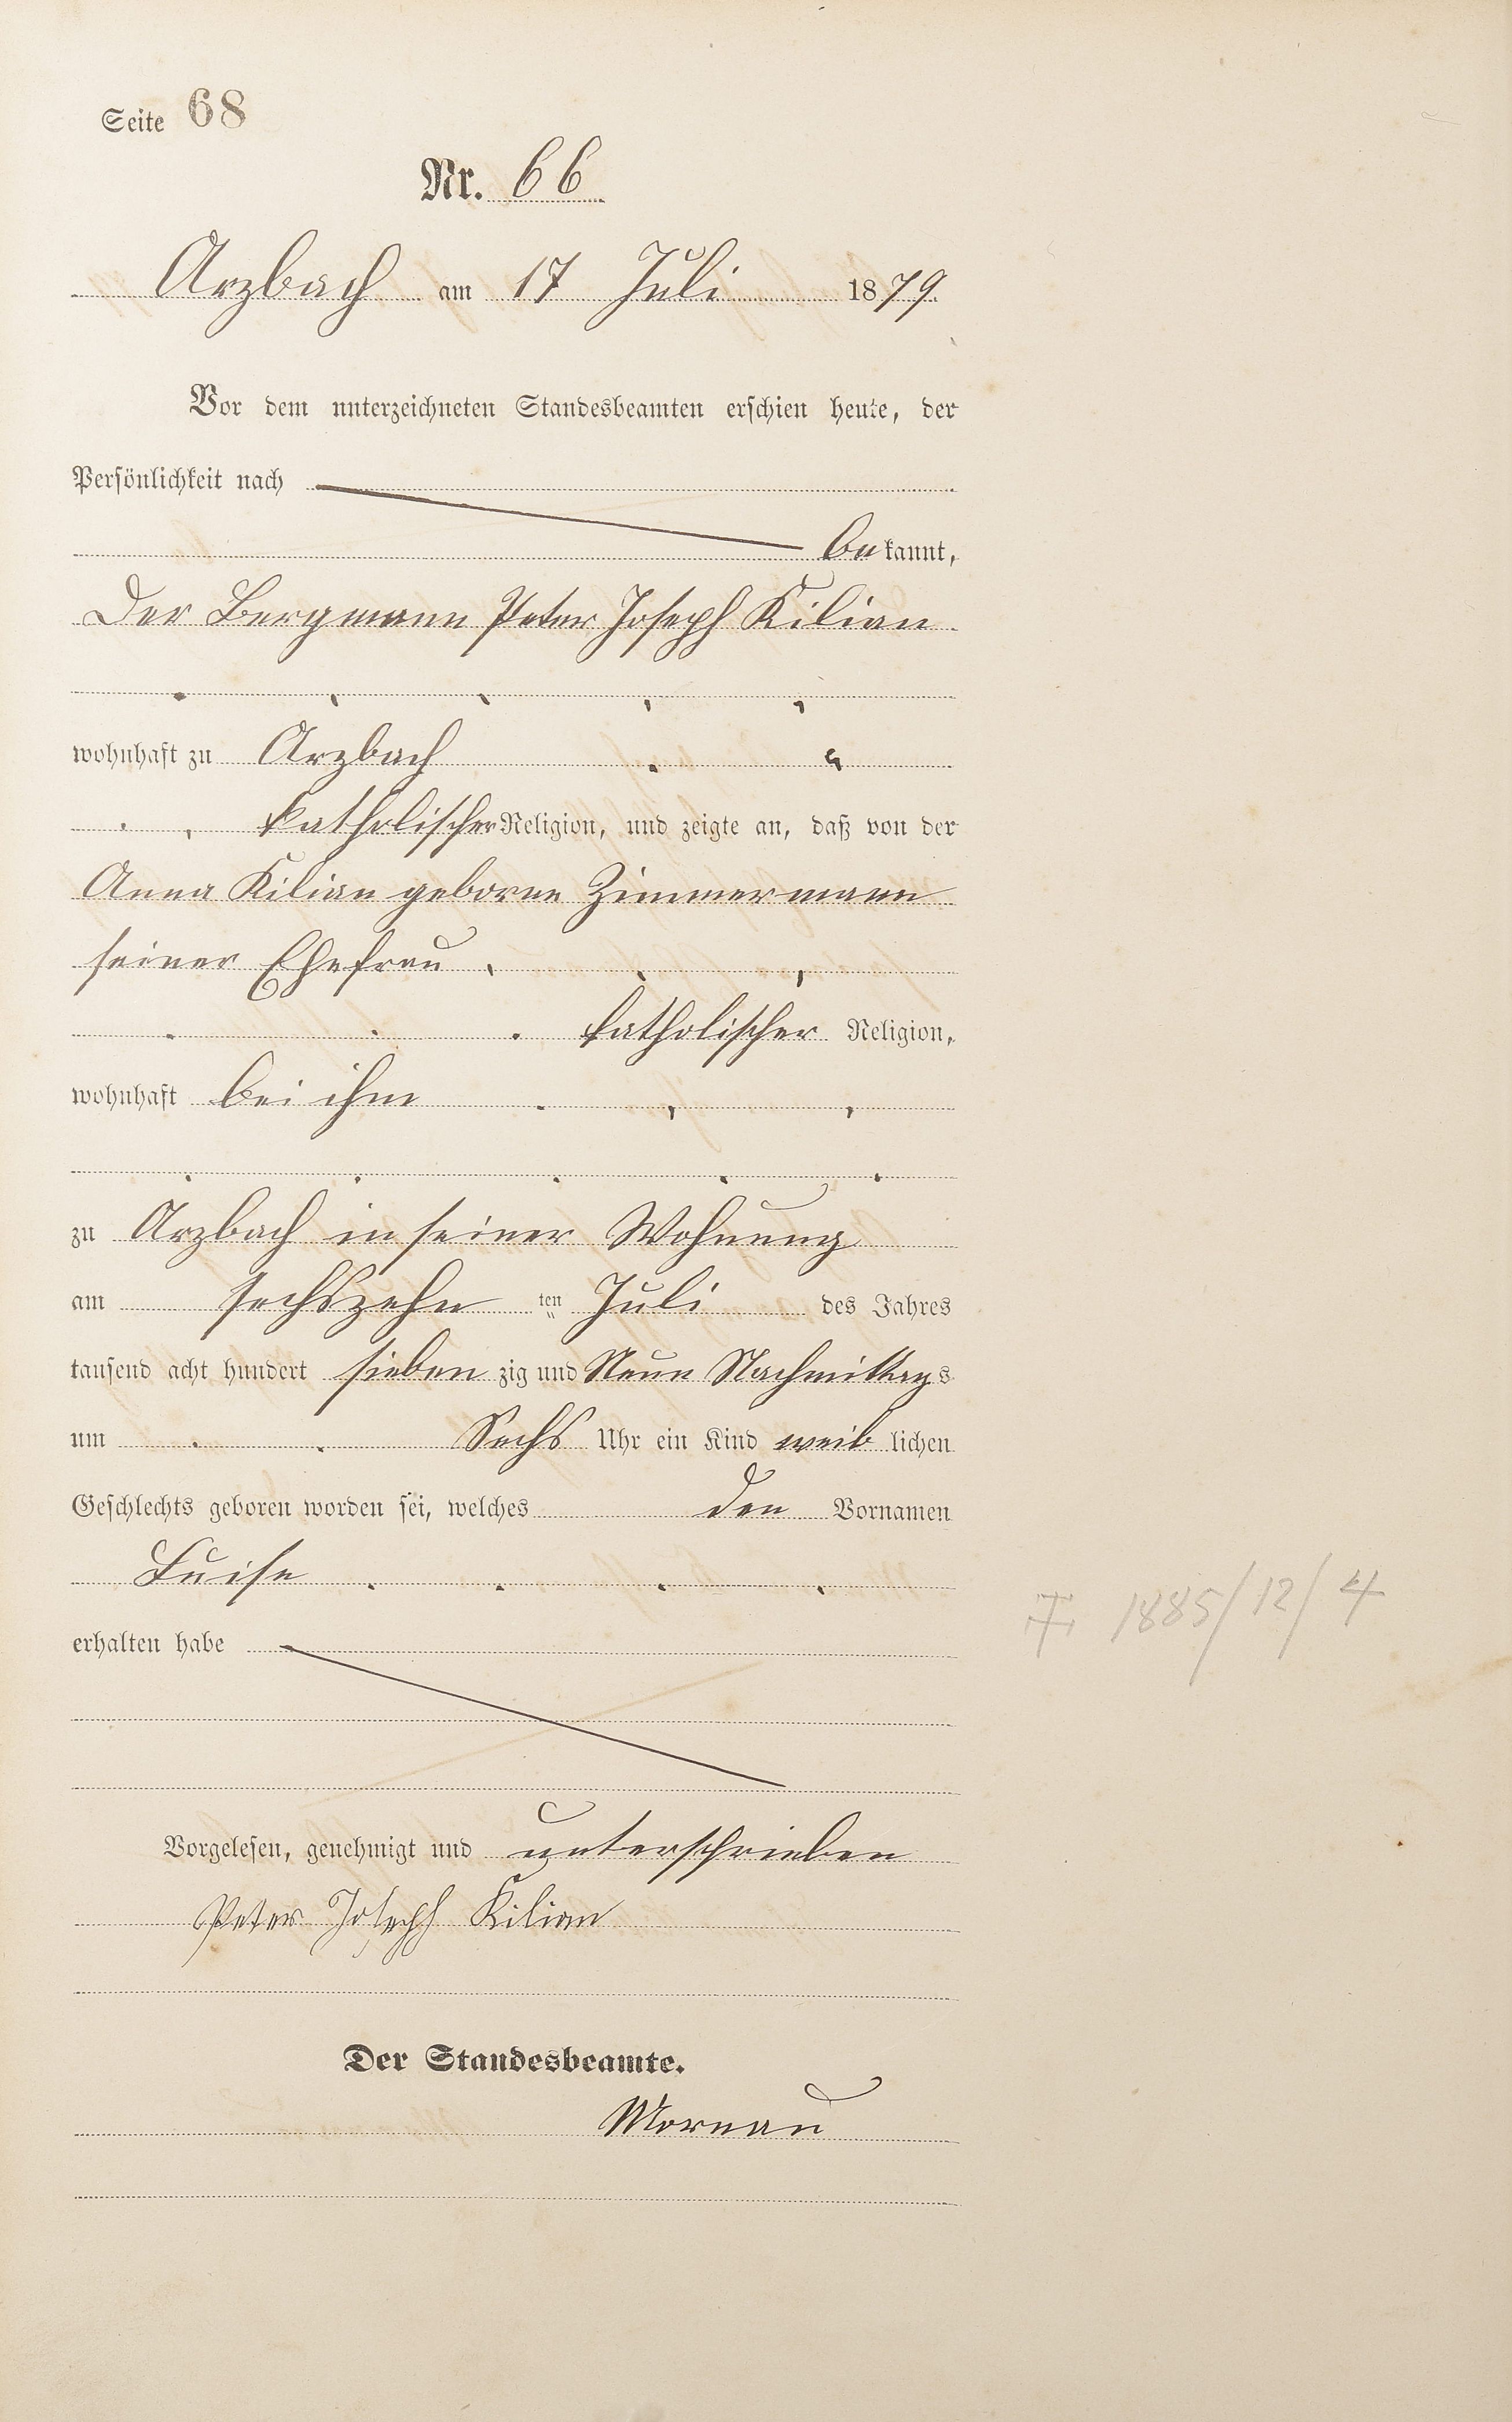 Seite 68
Nr. 66
Arzbach am 17 Juli 1879.
Vor dem unterzeichneten Standesbeamten erschien heute, der
Persönlichkeit nach
bekannt,
Der Bergmann Peter Joseph Kilian
wohnhaft zu Arzbach
katholischer Religion, und zeigte an, daß von der
Anna Kilian geborne Zimmermann
seiner Ehefrau
katholischer Religion,
wohnhaft bei ihm
zu Arzbach in seiner Wohnung
am sechszehn ten Juli des Jahres
tausend acht hundert sieben zig und Neun Nachmittags
um Sechs Uhr ein Kind weiblichen
Geschlechts geboren worden sei, welches den Vornamen
Luise
erhalten habe
Ŧ 1885/12/4
Vorgelesen, genehmigt und unterschrieben
Peter Joseph Kilian
Der Standesbeamte.
Mornau